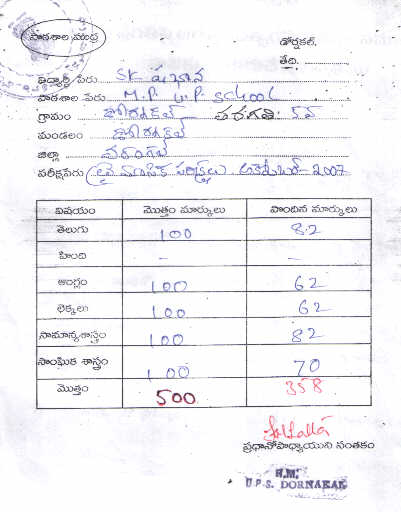 పాఠశాల ముద్ర
డోర్నకల్.
తేది.
విద్యార్థి పేరు SK
పాఠశాల పేరు M.P. U.P. School
గ్రామం డోర్నకల్ తరగతి:
మండలం డోర్నకల్
జిల్లా వరంగల్
పరీక్షపేరు 2007
విషయం మొత్తం మార్కులు పొందిన మార్కులు
తెలుగు 100 82
హింది - -
ఆంగ్లం 100 62
లెక్కలు 100 62
సామాన్యశాస్త్రం 100 82
సాంఘిక శాస్త్రం 100 70
మొత్తం 500 358
ప్రధానోపాధ్యాయుని సంతకం
H.M;
U.P.S. DORNAKAL